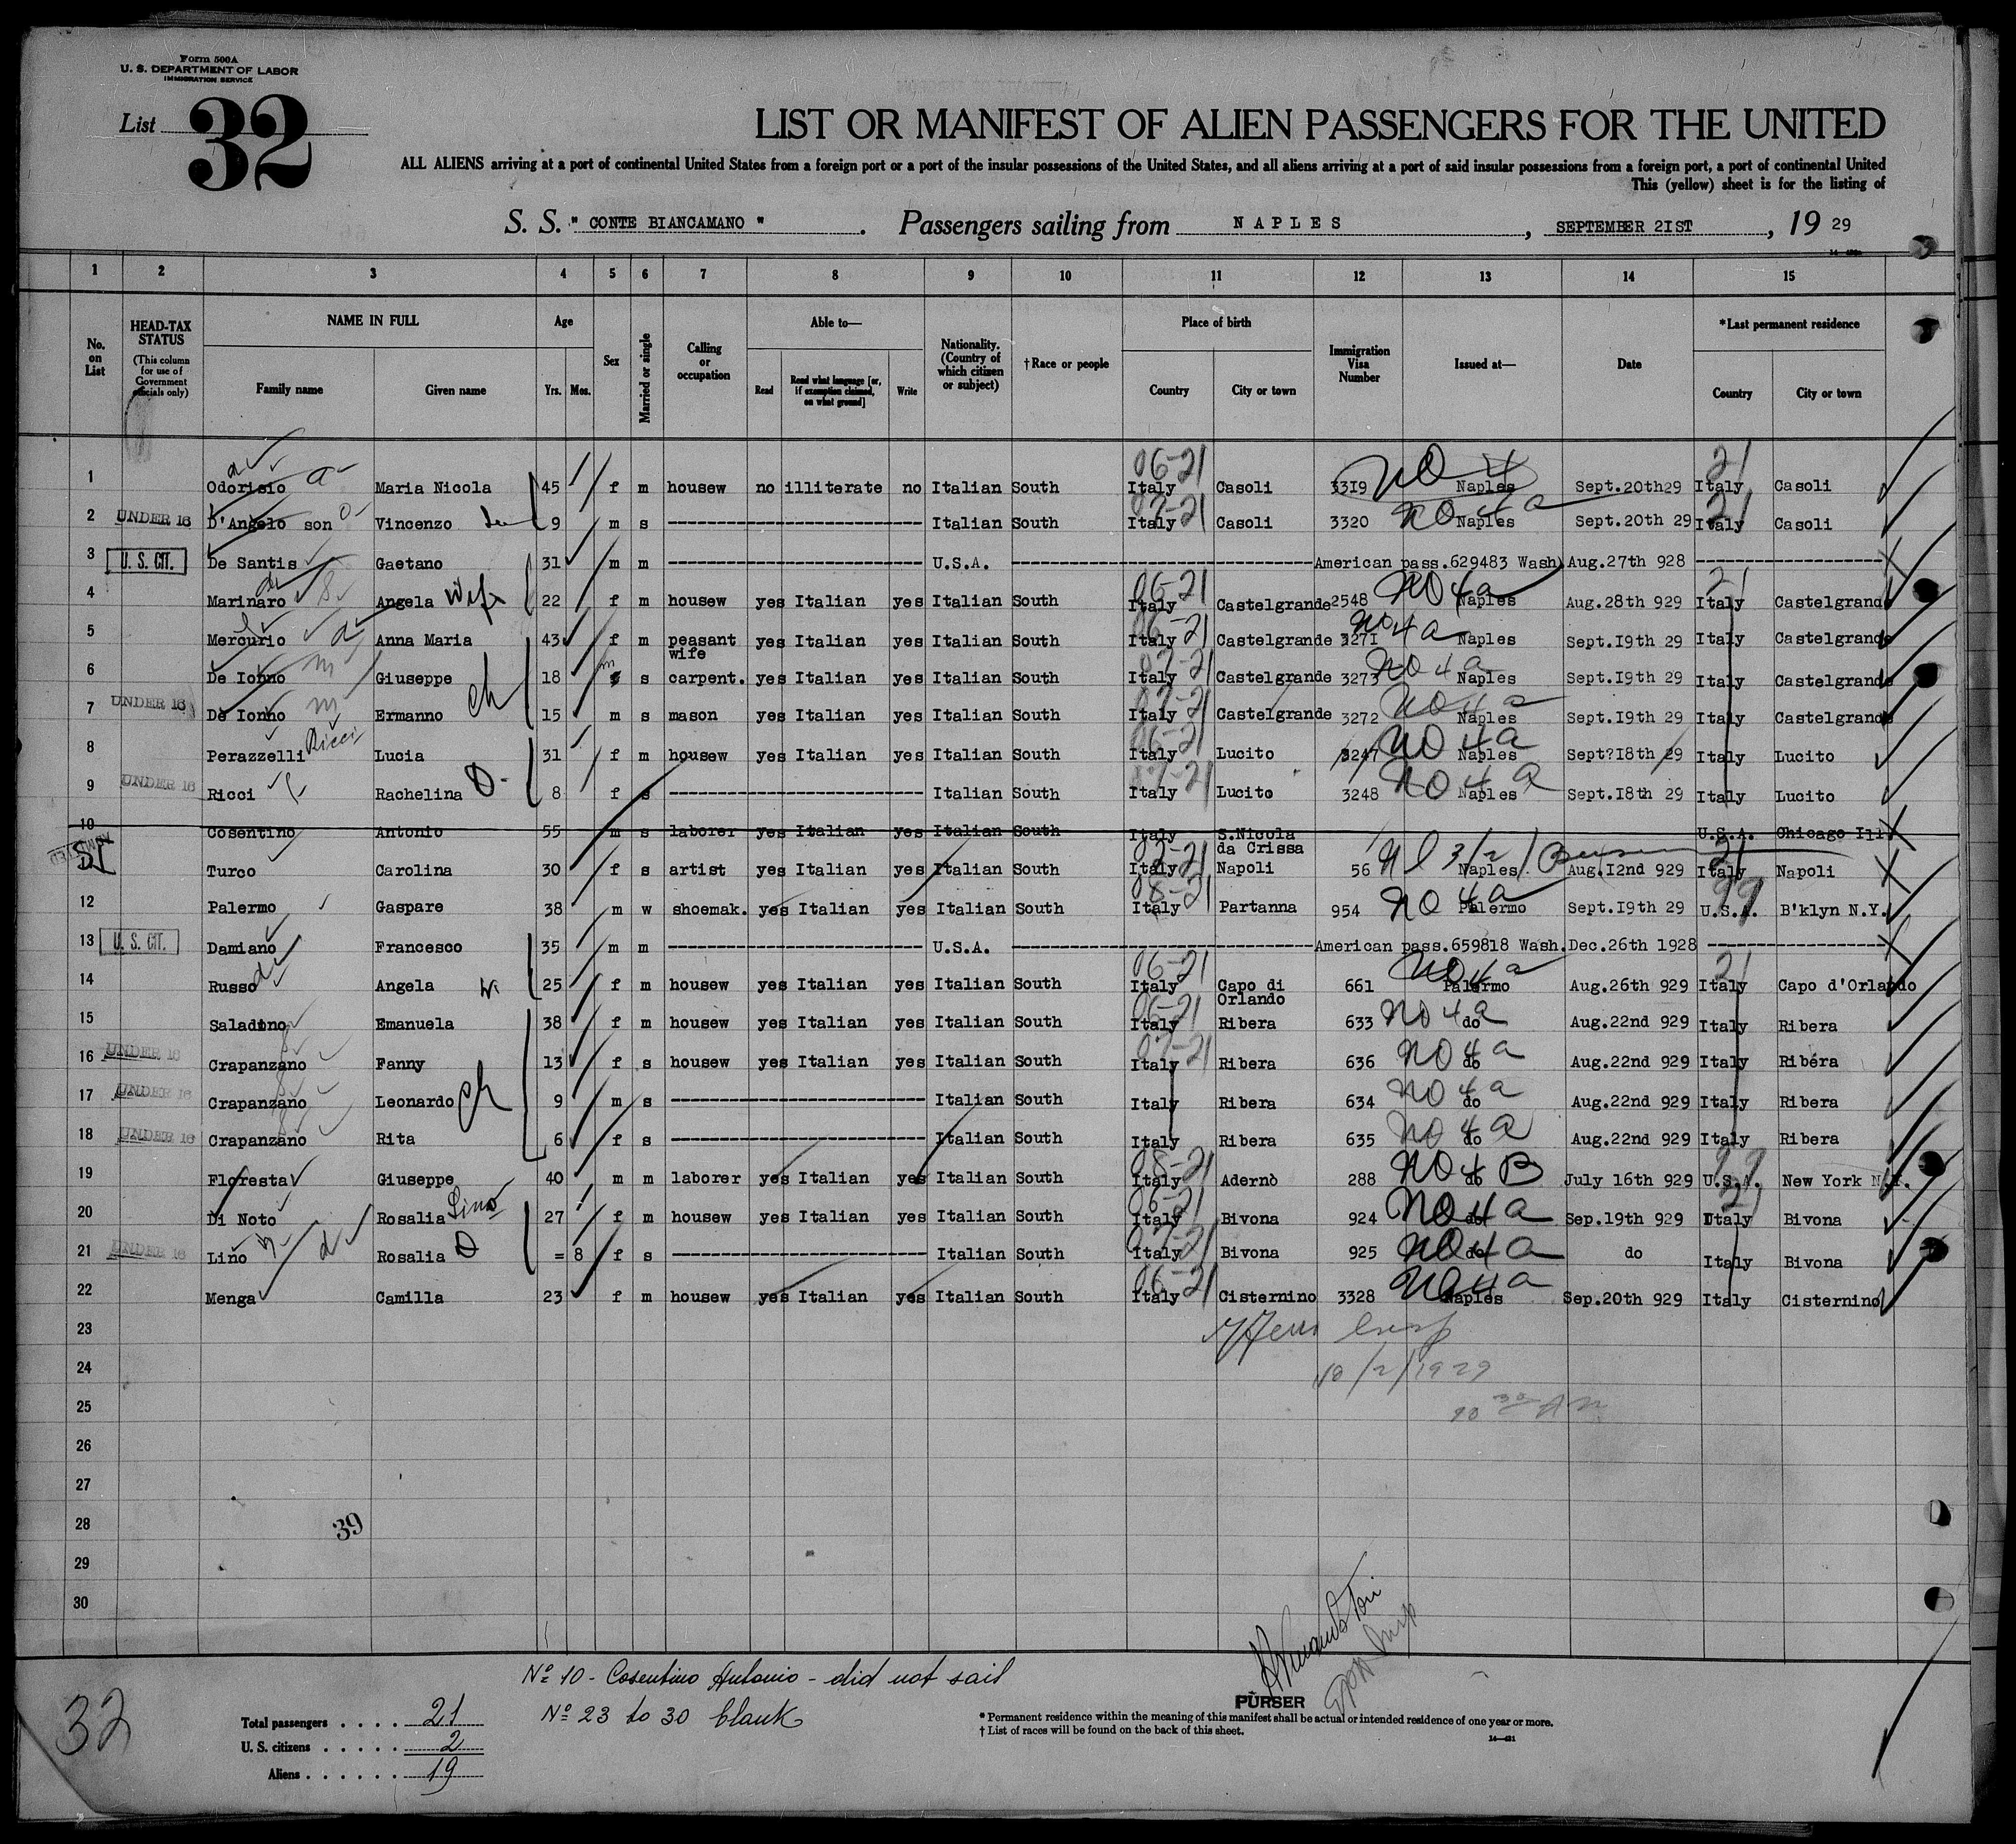 Form 500A
U. S. DEPARTMENT OF LABOR
IMMIGRATION SERVICE
List 32
LIST OR MANIFEST OF ALIEN PASSENGERS FOR THE UNITED
ALL ALIENS arriving at a port of continental United States from a foreign port or a port of the insular possessions of the United States, and all aliens arriving at a port of said insular possessions from a foreign port, a port of continental United
This (yellow) sheet is for the listing of
S. S. " CONTE BIANCAMANO " . Passengers sailing from NAPLES , SEPTEMBER 21ST , 19 29
1 2 3 4 5 6 7 8 9 10 11 12 13 14 15
No. on List
HEAD-TAX STATUS (This column for use of Government officials only)
NAME IN FULL Family name Given name
Age Yrs. Mos.
Sex
Married or single
Calling or occupation
Able to— Read Read what language [or, if exemption claimed, on what ground] Write
Nationality. (Country of which citizen or subject)
†Race or people
Place of birth Country City or town
Immigration Visa Number
Issued at—
Date
*Last permanent residence Country City or town
1 Odorisio Maria Nicola 45 f m housew no illiterate no Italian South Italy 06-21 Casoli 3319 NO 4 Naples Sept.20th29 Italy 21 Casoli
2 UNDER 16 D'Angelo son Vincenzo 9 m s Italian South Italy 07-21 Casoli 3320 NO 4 a Naples Sept.20th 29 Italy 21 Casoli
3 U. S. CIT. De Santis Gaetano 31 m m U.S.A. American pass.629483 Wash Aug.27th 928
4 Marinaro Angela wife 22 f m housew yes Italian yes Italian South Italy 06-21 Castelgrande 2548 NO 4a Naples Aug.28th 929 Italy 21 Castelgrande
5 Mercurio Anna Maria 43 f m peasant wife yes Italian yes Italian South Italy 06-21 Castelgrande 3271 NO 4a Naples Sept.19th 29 Italy Castelgrande
6 De Ionno Giuseppe 18 m s carpent. yes Italian yes Italian South Italy 07-21 Castelgrande 3273 NO 4a Naples Sept.19th 29 Italy Castelgrande
7 UNDER 16 De Ionno Ermanno ch 15 m s mason yes Italian yes Italian South Italy 07-21 Castelgrande 3272 NO 4a Naples Sept.19th 29 Italy Castelgrande
8 Perazzelli Ricci Lucia 31 f m housew yes Italian yes Italian South Italy 06-21 Lucito 3247 NO 4a Naples Sept?18th 29 Italy Lucito
9 UNDER 16 Ricci Rachelina D 8 f s Italian South Italy 07-21 Lucito 3248 NO 4a Naples Sept.18th 29 Italy Lucito
10 Cosentino Antonio 55 m s laborer yes Italian yes Italian South Italy S.Nicola da Crissa U.S.A. Chicago Ill
SI ADMITTED Turco Carolina 30 f s artist yes Italian yes Italian South Italy 02-21 Napoli 56 Naples Aug.12nd 929 Italy 21 Napoli
12 Palermo Gaspare 38 m w shoemak. yes Italian yes Italian South Italy 08-21 Partanna 954 NO 4a Palermo Sept.19th 29 U.S.A. 99 B'klyn N.Y.
13 U. S. CIT. Damiano Francesco 35 m m U.S.A. American pass.659818 Wash. Dec.26th 1928
14 Russo Angela W 25 f m housew yes Italian yes Italian South Italy 06-21 Capo di Orlando 661 NO 4a Palermo Aug.26th 929 Italy 21 Capo d'Orlando
15 Saladino Emanuela 38 f m housew yes Italian yes Italian South Italy 06-21 Ribera 633 NO 4a do Aug.22nd 929 Italy Ribera
16 UNDER 16 Crapanzano Fanny 13 f s housew yes Italian yes Italian South Italy 07-21 Ribera 636 NO 4a do Aug.22nd 929 Italy Ribéra
17 UNDER 16 Crapanzano Leonardo ch 9 m s Italian South Italy Ribera 634 NO 4a do Aug.22nd 929 Italy Ribera
18 UNDER 16 Crapanzano Rita 6 f s Italian South Italy Ribera 635 NO 4a do Aug.22nd 929 Italy Ribera
19 Floresta Giuseppe 40 m m laborer yes Italian yes Italian South Italy 08-21 Adernò 288 NO 4 B do July 16th 929 U.S.A. 99 New York N.Y.
20 Di Noto Rosalia Lino 27 f m housew yes Italian yes Italian South Italy 06-21 Bivona 924 NO 4a do Sep.19th 929 Italy 21 Bivona
21 UNDER 16 Lino Rosalia D = 8 f s Italian South Italy 07-21 Bivona 925 NO 4a do do Italy Bivona
22 Menga Camilla 23 f m housew yes Italian yes Italian South Italy 06-21 Cisternino 3328 NO 4a Naples Sep.20th 929 Italy Cisternino
23
24 10/2/1929
25 10 30 AM
26
27
28 39
29
30
Nº 10 - Cosentino Antonio - did not sail
Nº 23 to 30 blank
32
Total passengers . . . . 21
U. S. citizens . . . . . 2
Aliens . . . . . . 19
PURSER
* Permanent residence within the meaning of this manifest shall be actual or intended residence of one year or more.
† List of races will be found on the back of this sheet.
14—421